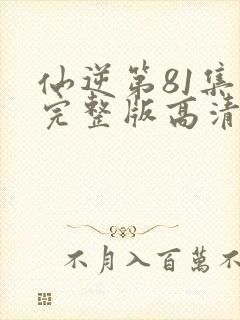 仙逆第81集
完整版高清
不月入百萬不